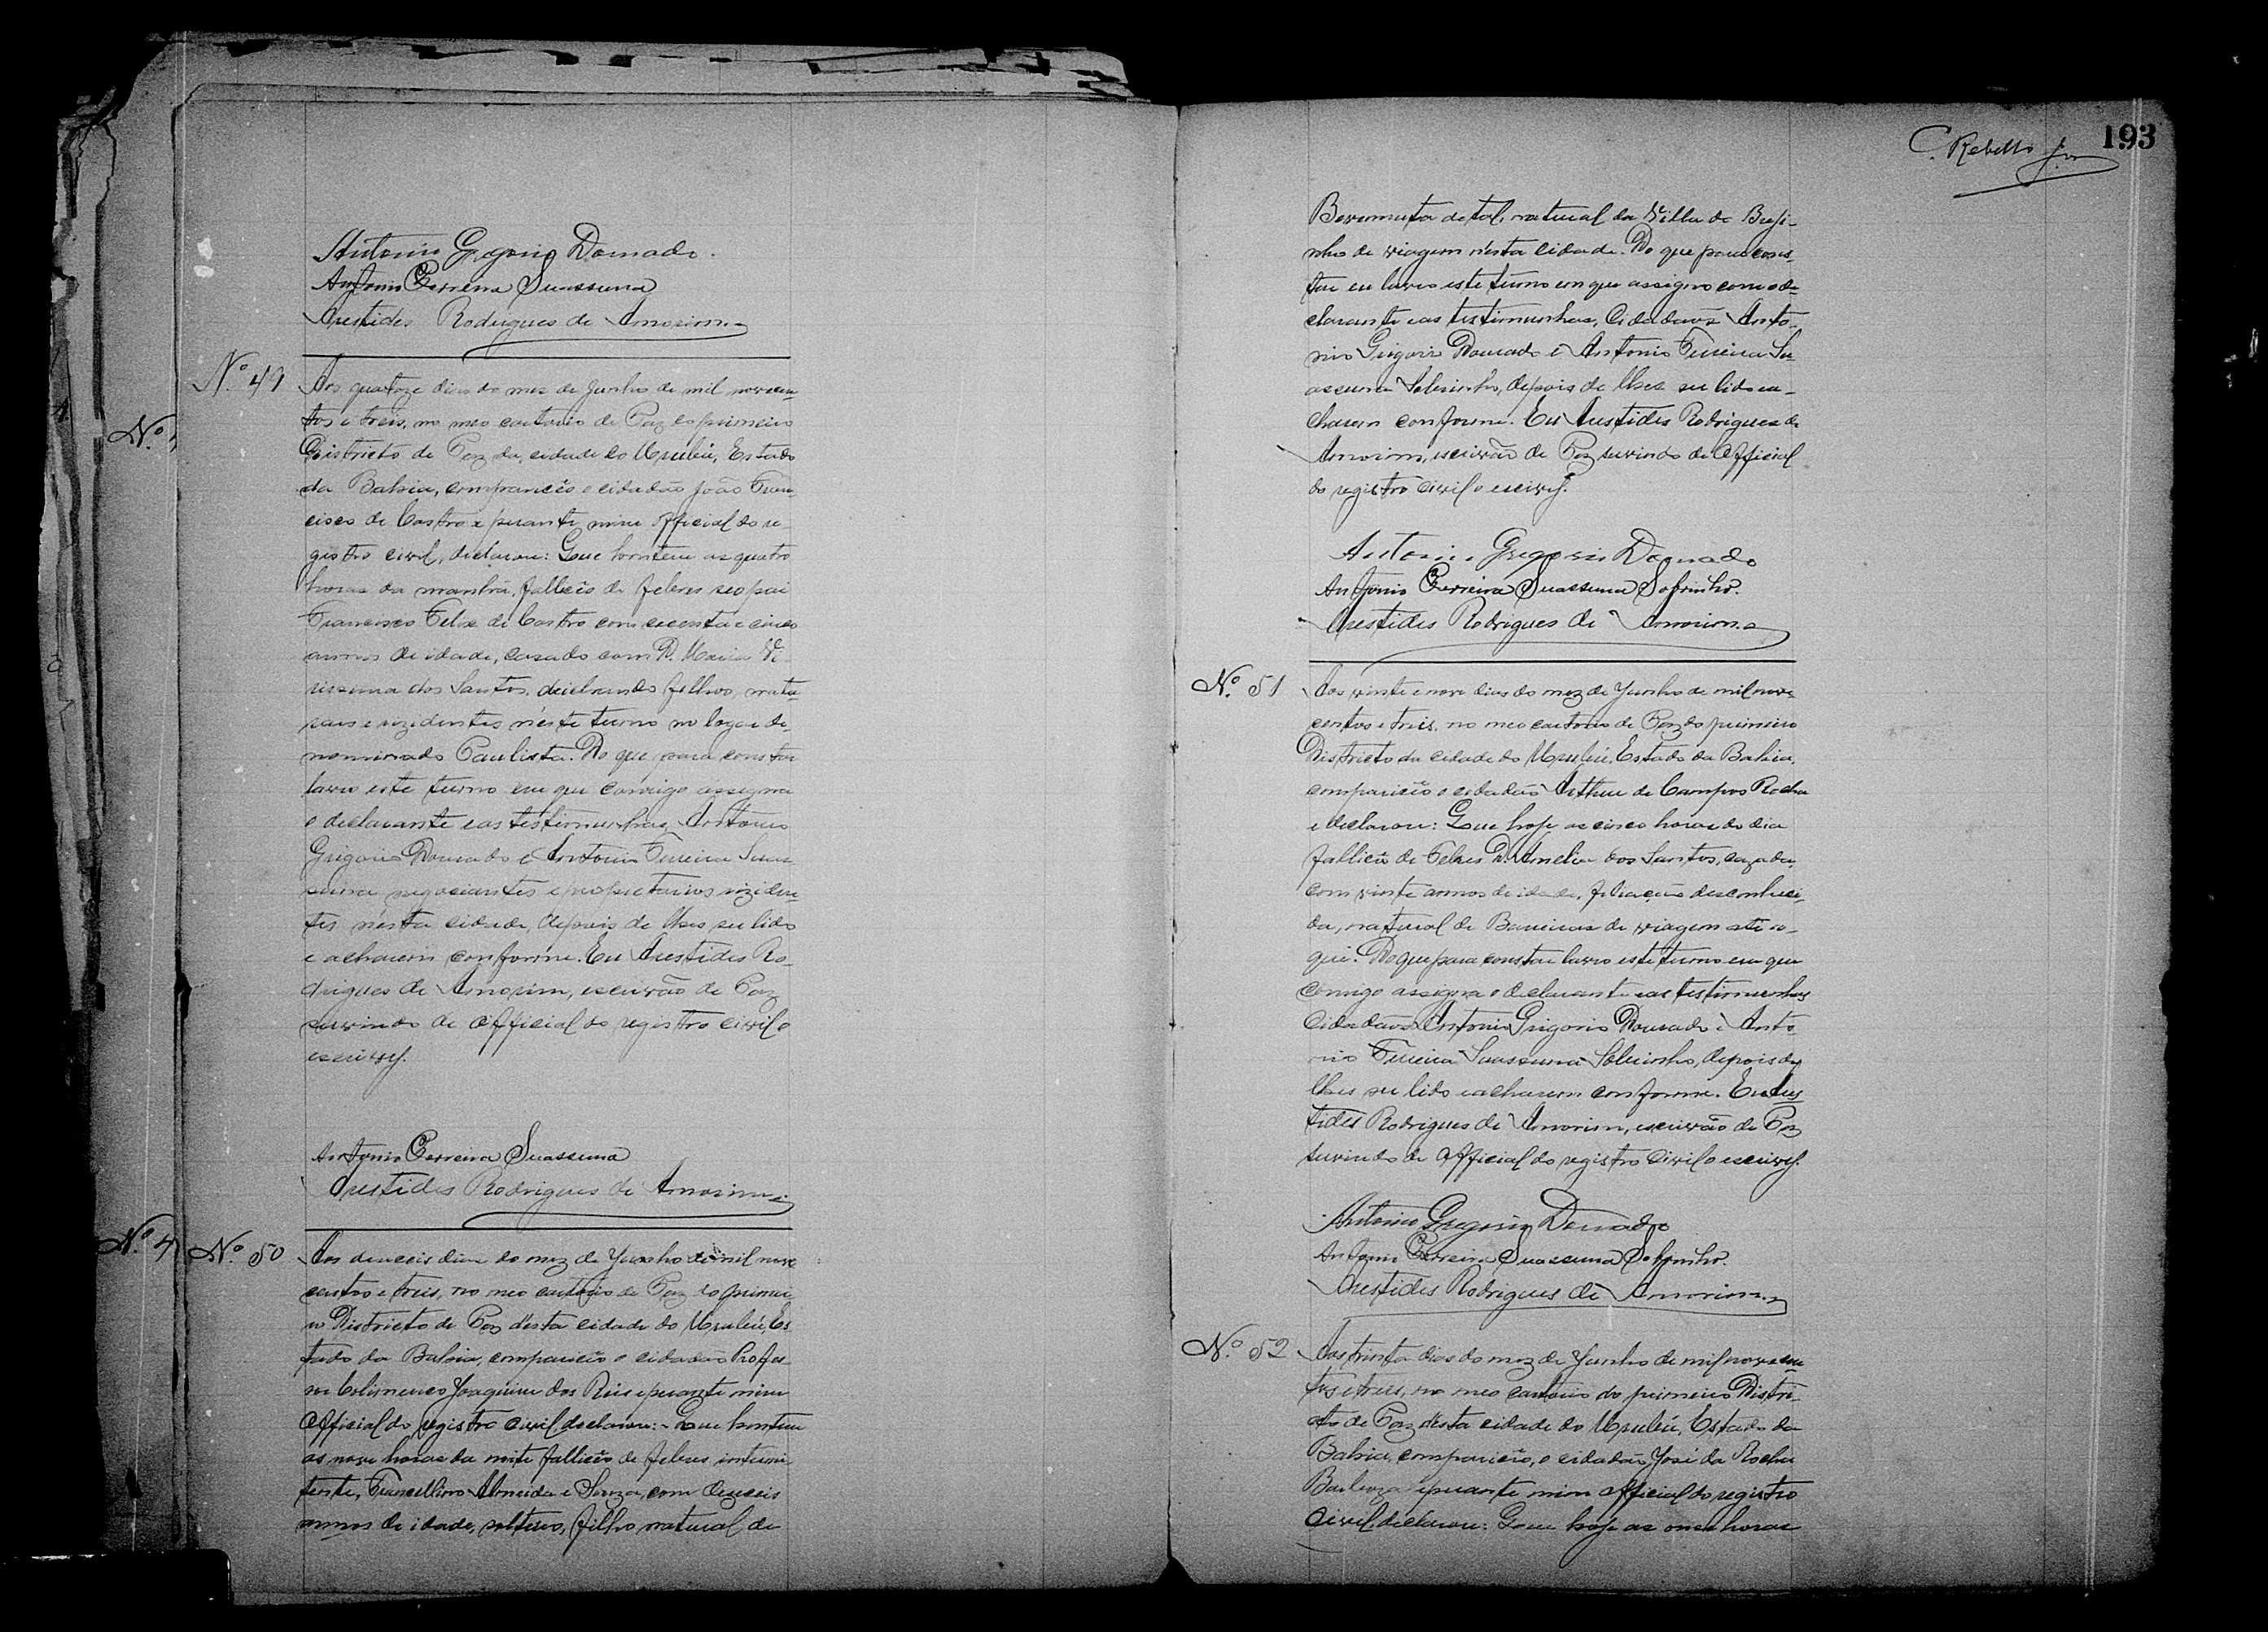 Antonio Gregorio Dourado.
Antonio Ferreira Suassuna
Arestides Rodrigues de Amorim.
Nº 49
Aos quatoze dias do mez de Junho de mil novecen-
tos e treis, no meo cartorio de Paz do primeiro
Districto de Paz da cidade do Urubú, Estado
da Bahia, compareceo o cidadão João Fran-
cisco de Castro e perante mim official do re-
gistro civil, declarou: Que hontem as quatro
horas da manhã, falleceo de febres seo pai
Francisco Felix de Castro com secenta e cinco
annos de idade, casado com D. Maria Ve-
rissima dos Santos, deichando filhos, natu-
raes e rezidentes n'este termo no logar de-
nominado Paulista. Do que para constar
lavro este termo em que comigo assigna
o declarante e as testimunhas, Antonio
Grigorio Dourado e Antonio Ferreira Suas-
suna negociantes e proprietarios reziden-
tes nesta cidade, depois de lhes ser lido
e acharem conforme. Eu Arestides Ro-
drigues de Amorim, escrivão de Paz
servindo de official do registro civil o
escrevy.
Antonio Ferreira Suassuna
Arestides Rodrigues de Amorim.
Nº 4
Nº 50
Aos deuceis dias do mez de Junho de mil nove
centos e treis, no meo cartorio de Paz do primei-
ro Districto de Paz d'esta cidade do Urubú, Es
tado da Bahia, compareceo o cidadão Profes-
sor Joaquim dos Reis e perante mim
Official do registro civil, declarou: Que hontem
as nove horas da noite falleceo de febres intermi-
tente, Francellino Almeida e Souza, com deuceis
annos de idade, solteiro, filho natural de
193
C. Rebello Jor
de tal, natural da Villa do Breji-
nho de viagem n'esta cidade. Do que para cons-
tar eu lavro este termo em que assigno com o de-
clarante e as testimunhas, Cidadãos Anto-
nio Grigorio Dourado e Antonio Ferreira Su
assuna Sobrinho, depois de lhes ser lido e a-
charem conforme. Eu Arestides Rodrigues de
Amorim, escrivão de Paz servindo de Official
do registro civil o escrevy.
Antonio Gregorio Dourado
Antonio Ferreira Suassuna Sobrinho.
Arestides Rodrigues de Amorim.
Nº 51
Aos vinte e nove dias do mez de Junho de mil nove
centos e treis, no meo cartorio de Paz do primeiro
Districto da cidade do Urubú, Estado da Bahia,
compareceo o cidadão Arthur de Campos Rocha
e declarou: Que hoje as cinco horas do dia
falleceo de Febres D. Amelia dos Santos, cazada,
com vinte annos de idade, filiação desconheci-
da, natural de Barreiras de viagem até a-
qui. Do que para constar lavro este termo em que
comigo assigna o declarante e as testimunhas
Cidadãos Antonio Grigorio Dourado e Anto-
nio Ferreira Suassuna Sobrinho, depois de
lhes ser lido e acharem conforme. Eu Ares
tides Rodrigues de Amorim, escrivão de Paz
servindo de official do registro Civil o escrevy.
Antonio Gregorio Dourado
Antonio Ferreira Suassuna Sobrinho.
Arestides Rodrigues de Amorim.
Nº 52
Aos trinta dias do mez de Junho de mil novecen
tos e treis, no meo cartorio do primeiro Distri-
cto de Paz d'esta cidade do Urubú, Estado da
Bahia, compareceo, o cidadão José da Rocha
Barboza e perante mim official do registro
Civil, declarou: Que hoje as onse horas